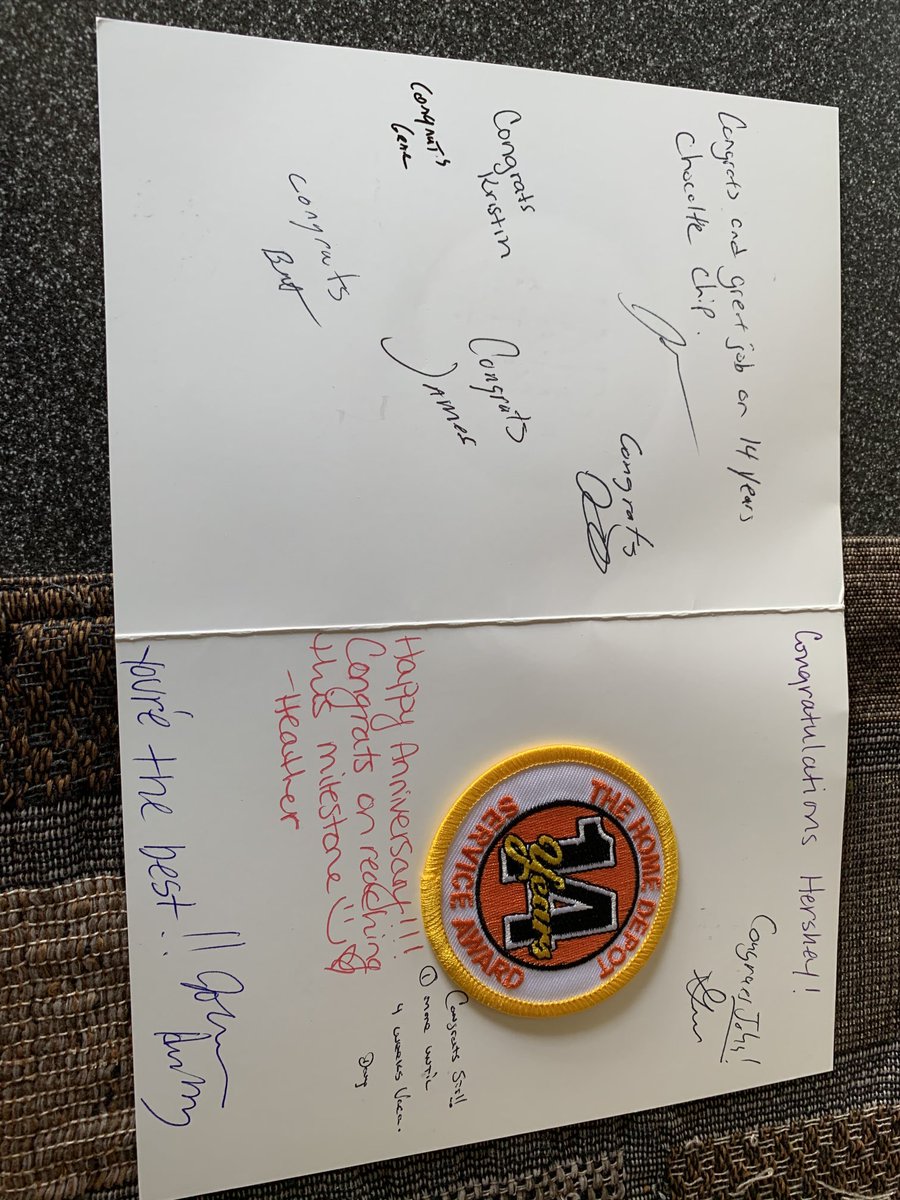 Congrats and great job on 14 years
Chocolte Chip.
Congrats
Congrats
Kristin
Congrat's
Gene
Congrats
James
Congrats
Congratulations Hershey!
Congrats John!
THE HOME DEPOT
14
Years
SERVICE AWARD
Congrats Sir!!
① more until
4 weeks Vaca.
Happy Anniversary!!!
Congrats on reaching
this milestone
-Heather
You're the best!!